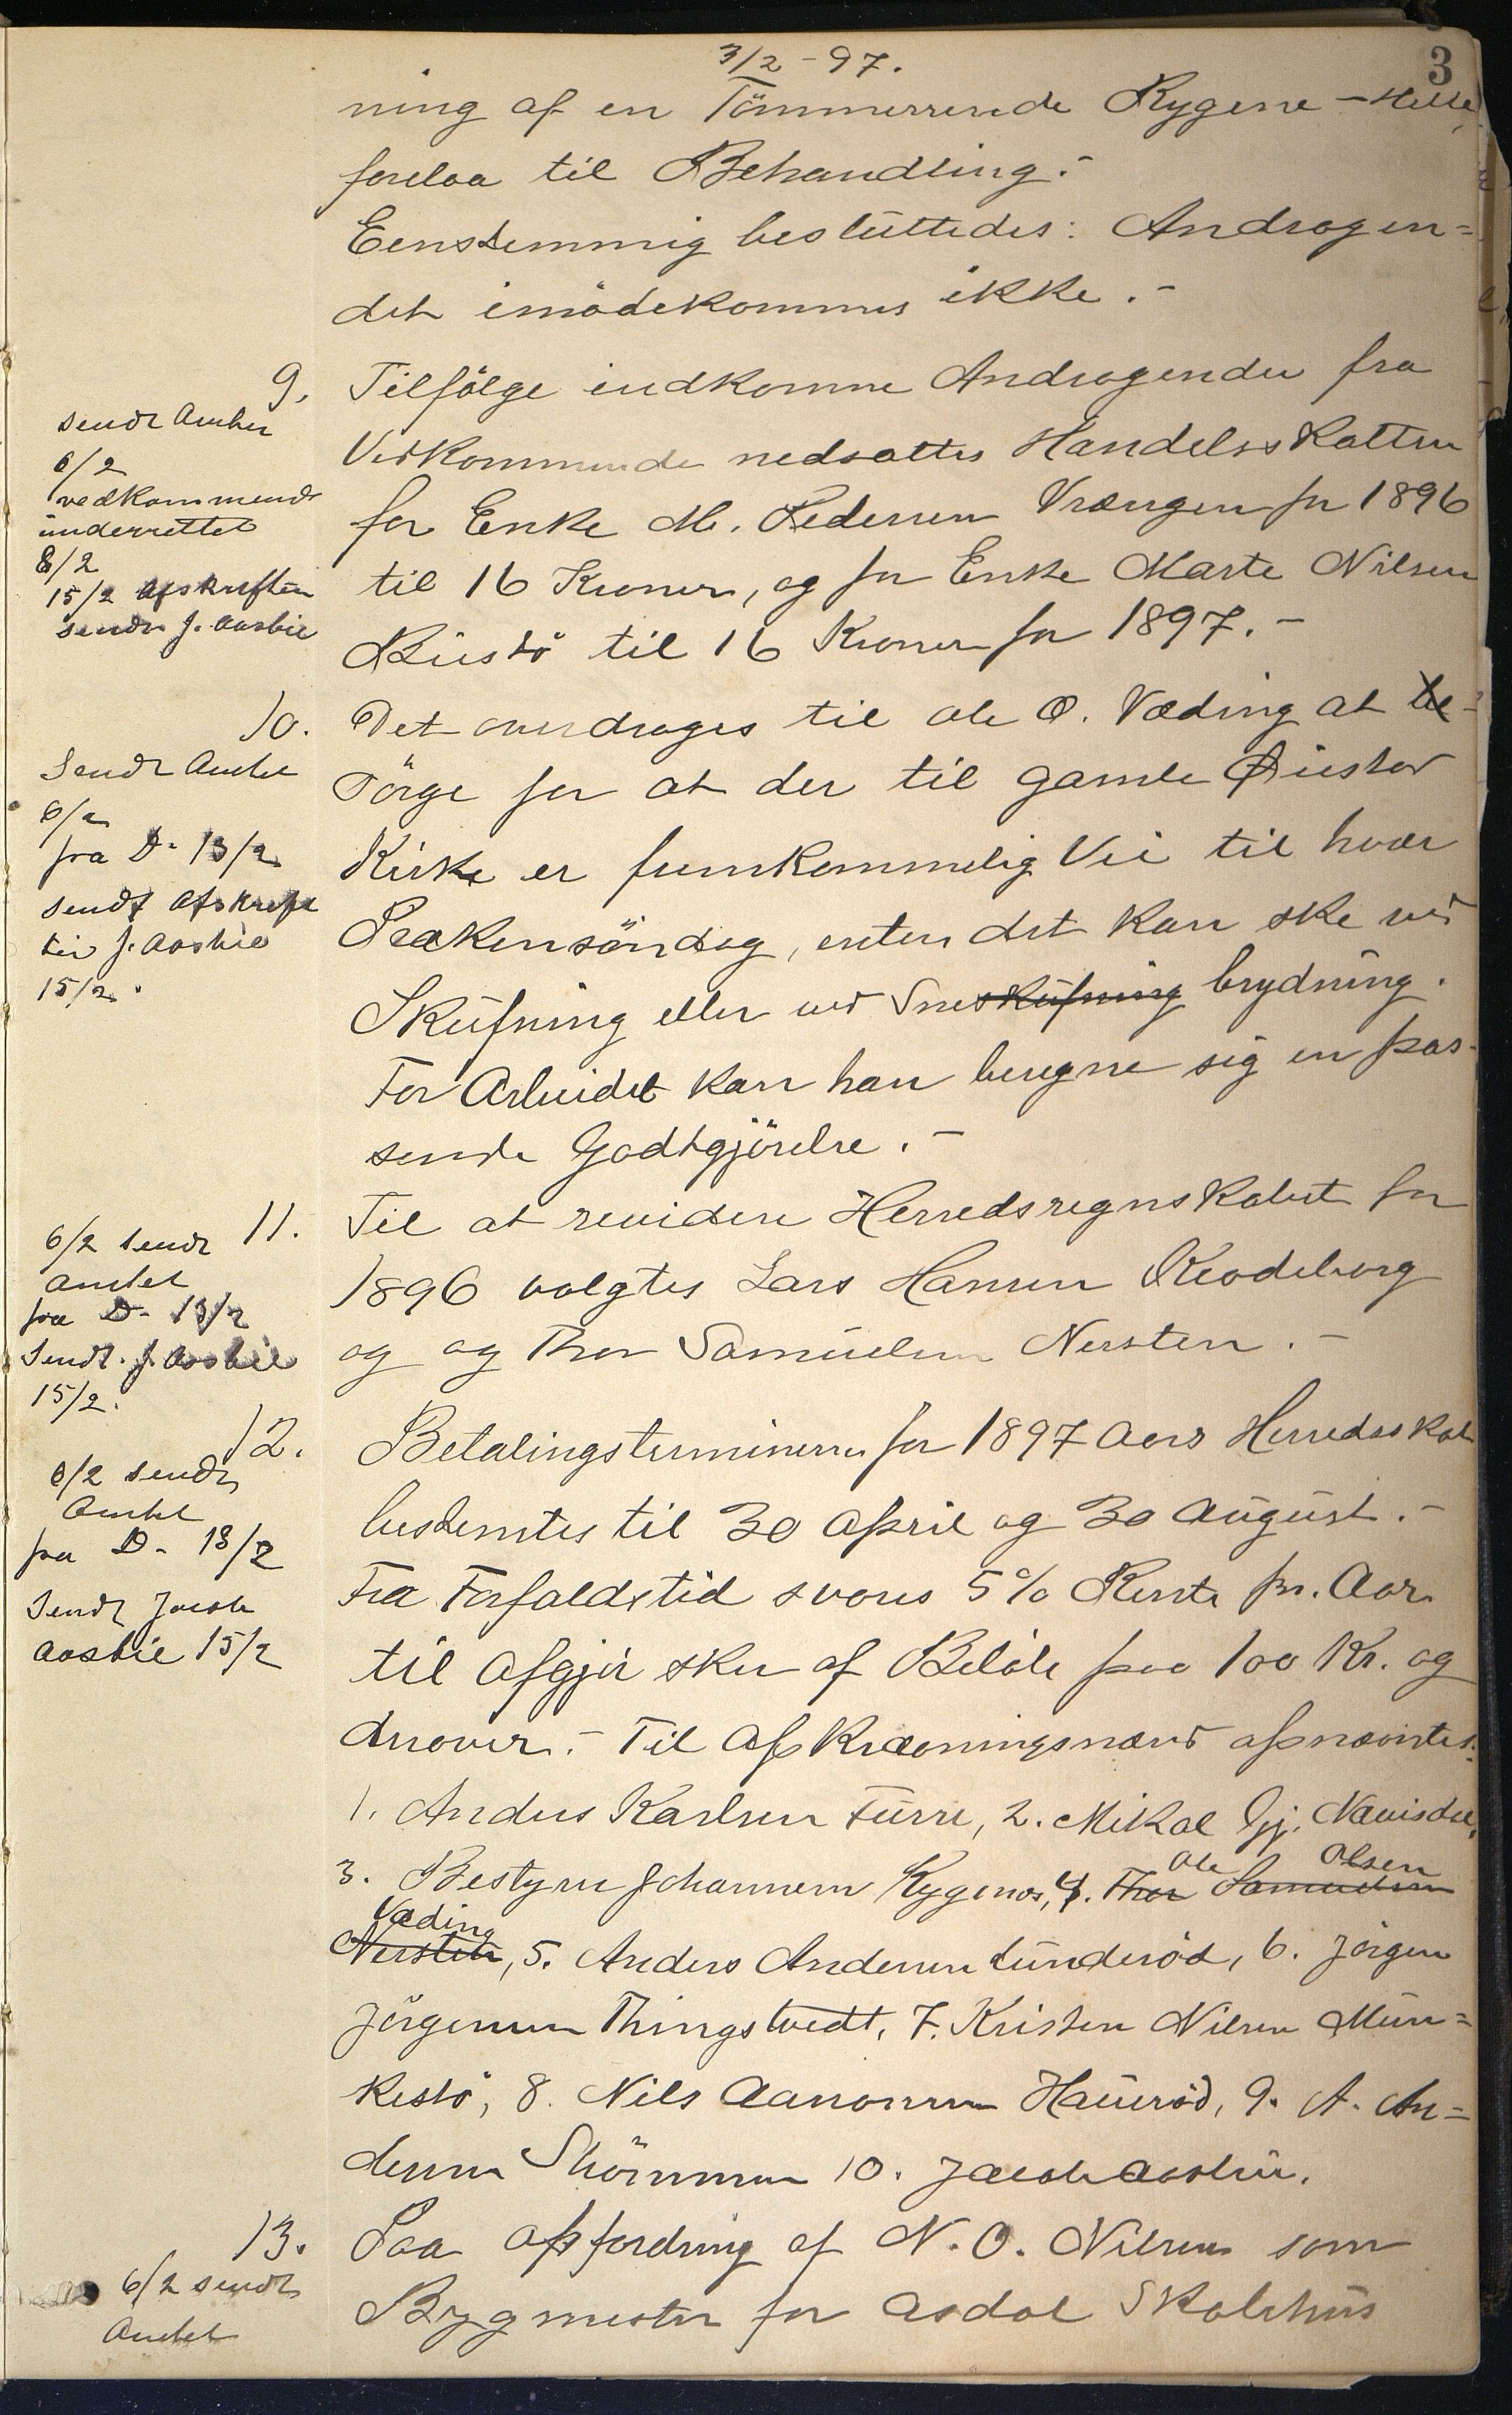 3/2 - 97.
3
ning af en Tömmerrende Rygene - Helle,
forelaa til Behandling.-
Eenstemmig besluttedes: Andragen=
det imödekommes ikke.-
9.
Sendt Amtet
6/2
vedkommende
underrettet
8/2
15/2 Afskriften
sendt J. Aasbie
Tilfölge indkomne Andragender fra
Vedkommende nedsattes Handelsskatten
for Enke M. Pedersen Vrængen for 1896
til 16 Kroner, og for Enke Marte Nilsen
Bustö til 16 Kroner for 1897.-
10.
Sendt Amtet
6/2
fra D- 13/2
sendt Afskrift
til J. Aasbie
15/2.
Det overdrages til Ole O. Væding at be-
Törge for at der til gamle Öiestad
Kirke er fremkommelig Vei til hver
Prækensöndag, enten det kan ske ved
Skufning eller ved Sneskufning brydning.
For Arbeidet kan han beregne sig en pas-
sende Godtgjörelse.-
11.
6/2 sendt
Amtet
fra D- 13/2
Sendt J. Aasbie
15/2.
Til at revidere Herredsregnskabet for
1896 valgtes Lars Hansen Rodeborg
og og Thor Samuelsen Nersten.-
12.
6/2 sendt
Amtet
fra D- 13/2
Sendt Jacob
Aasbie 15/2
Betalingsterminerne for 1897 Aars Herredsskat
bestemtes til 30 April og 30 August.-
Fra Forfaldstid svares 5% Rente pr. Aar
til Afgjör sker af Belöb paa 100 Kr. og
derover.- Til Afkrævningsmænd opnævntes:
1. Anders Karlsen Furre, 2. Mikal Gj. Nævisdal,
3. Bestyrer Johannesen Rygene, 4. Thor Samuelsen
Ole Olsen
Væding
Nersten, 5. Anders Andersen Lunderöd, 6. Jörgen
Jörgensen Thingstvedt, 7. Kristen Nilsen Mun=
kestö, 8. Nils Aanonsen Haueröd, 9. A. An=
dersen Strömmen 10. Jacob Aasbie.
13.
6/2 sendt
Amtet
Paa Opfordring af N. O. Nilsen som
Bygmester for Asdal Skolehus